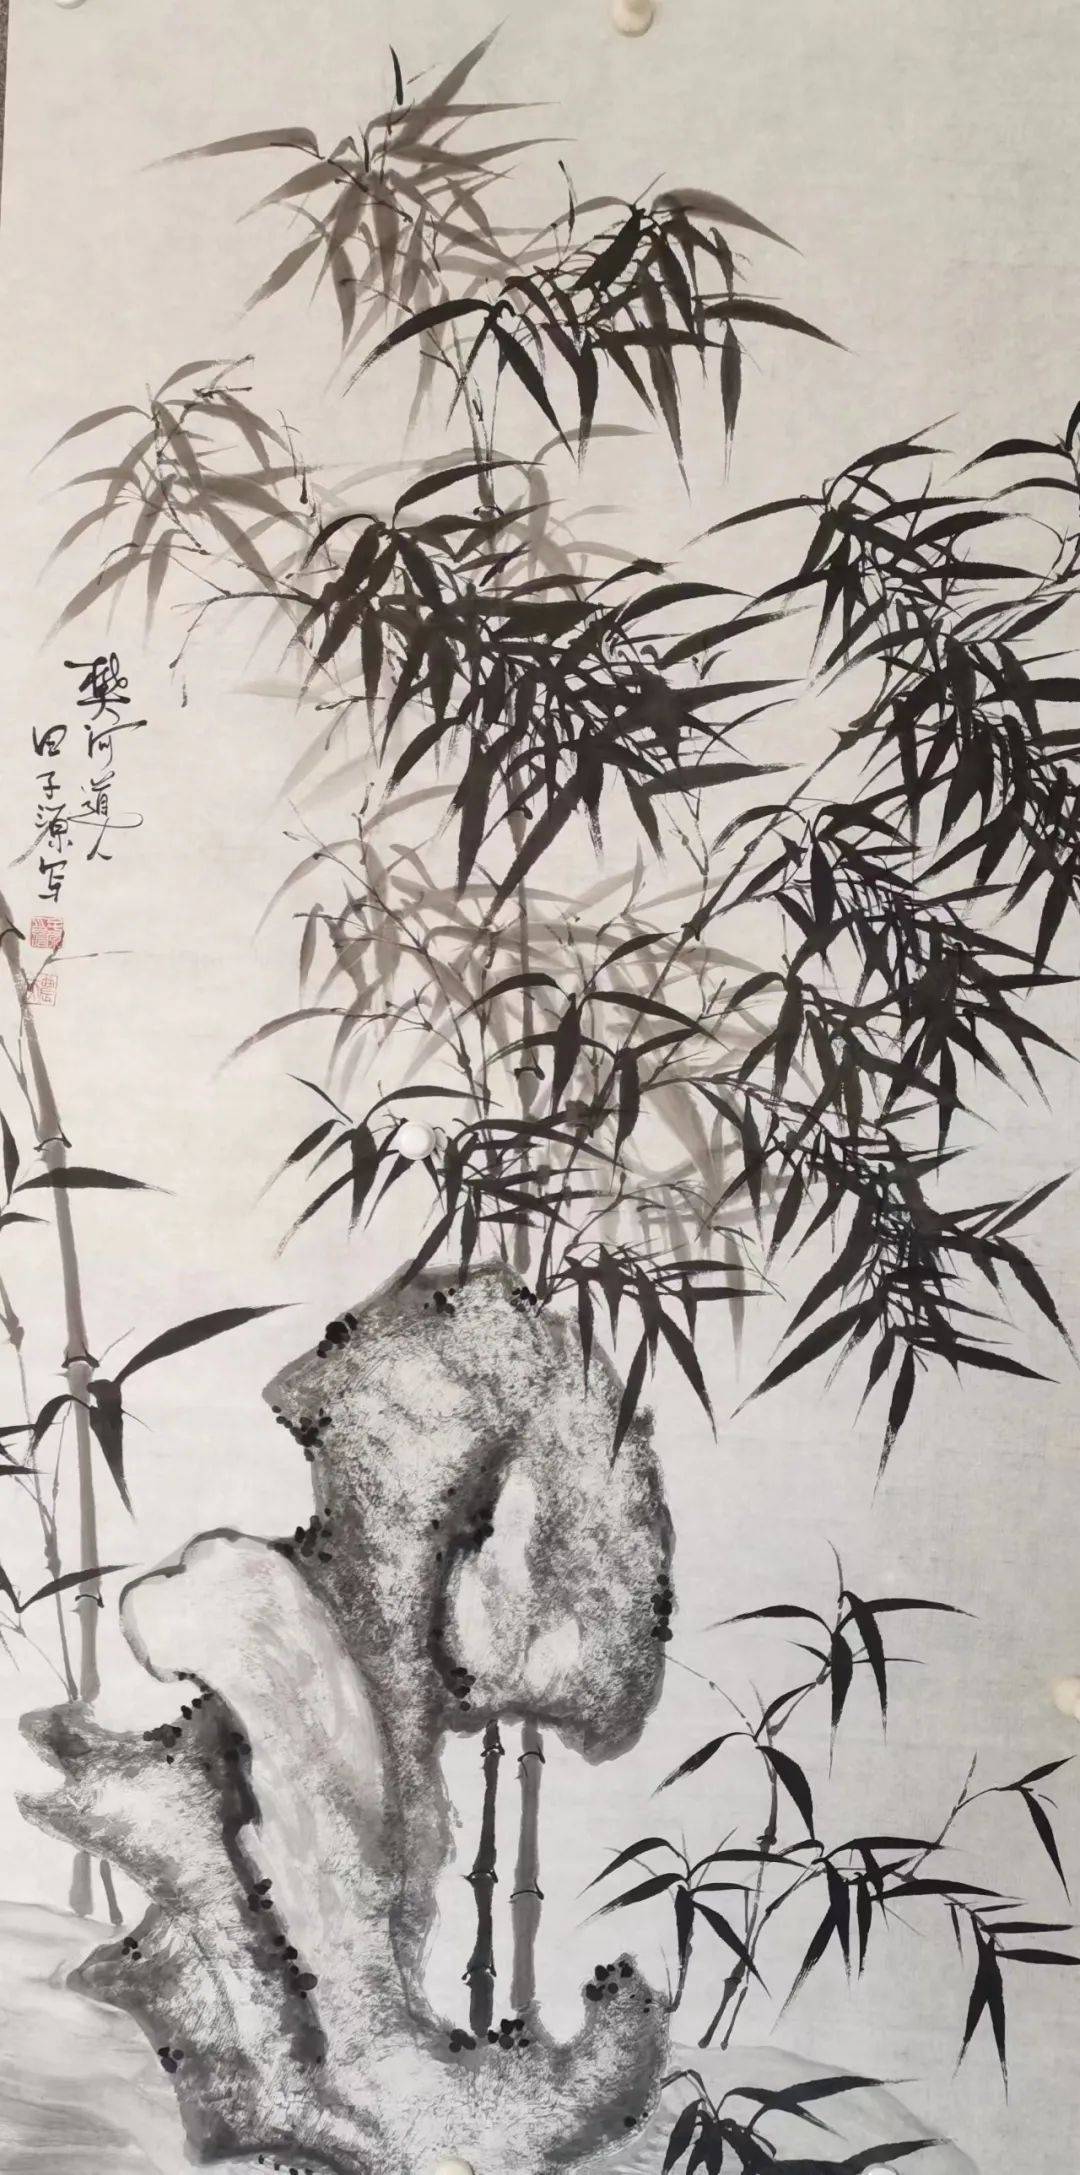 樊河道人
田子源写